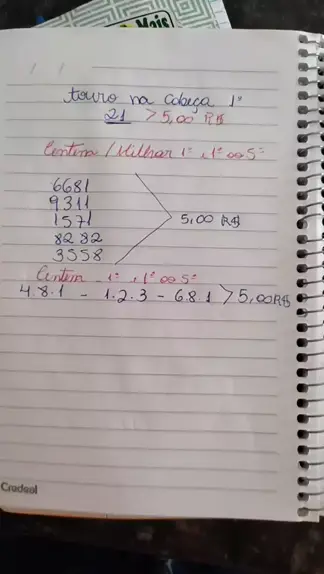 Mais
touro na cabeça 1º
21 > 5,00 R$
Centena / Milhar 1º , 1º ao 5º
6681
9311
1571
8232
3558
5,00 R$
Centena 1º , 1º ao 5º
4.8.1 - 1.2.3 - 6.8.1 > 5,00 R$
Credeal